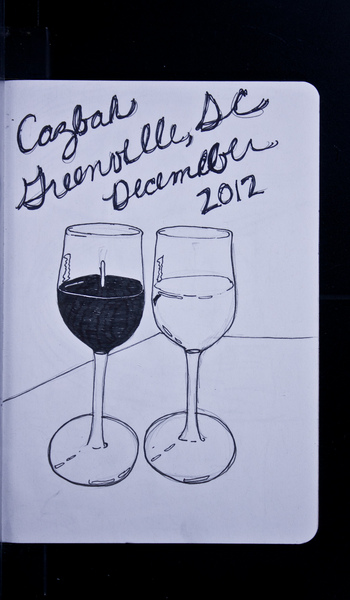 Cazbah
Greenville, SC
December
2012